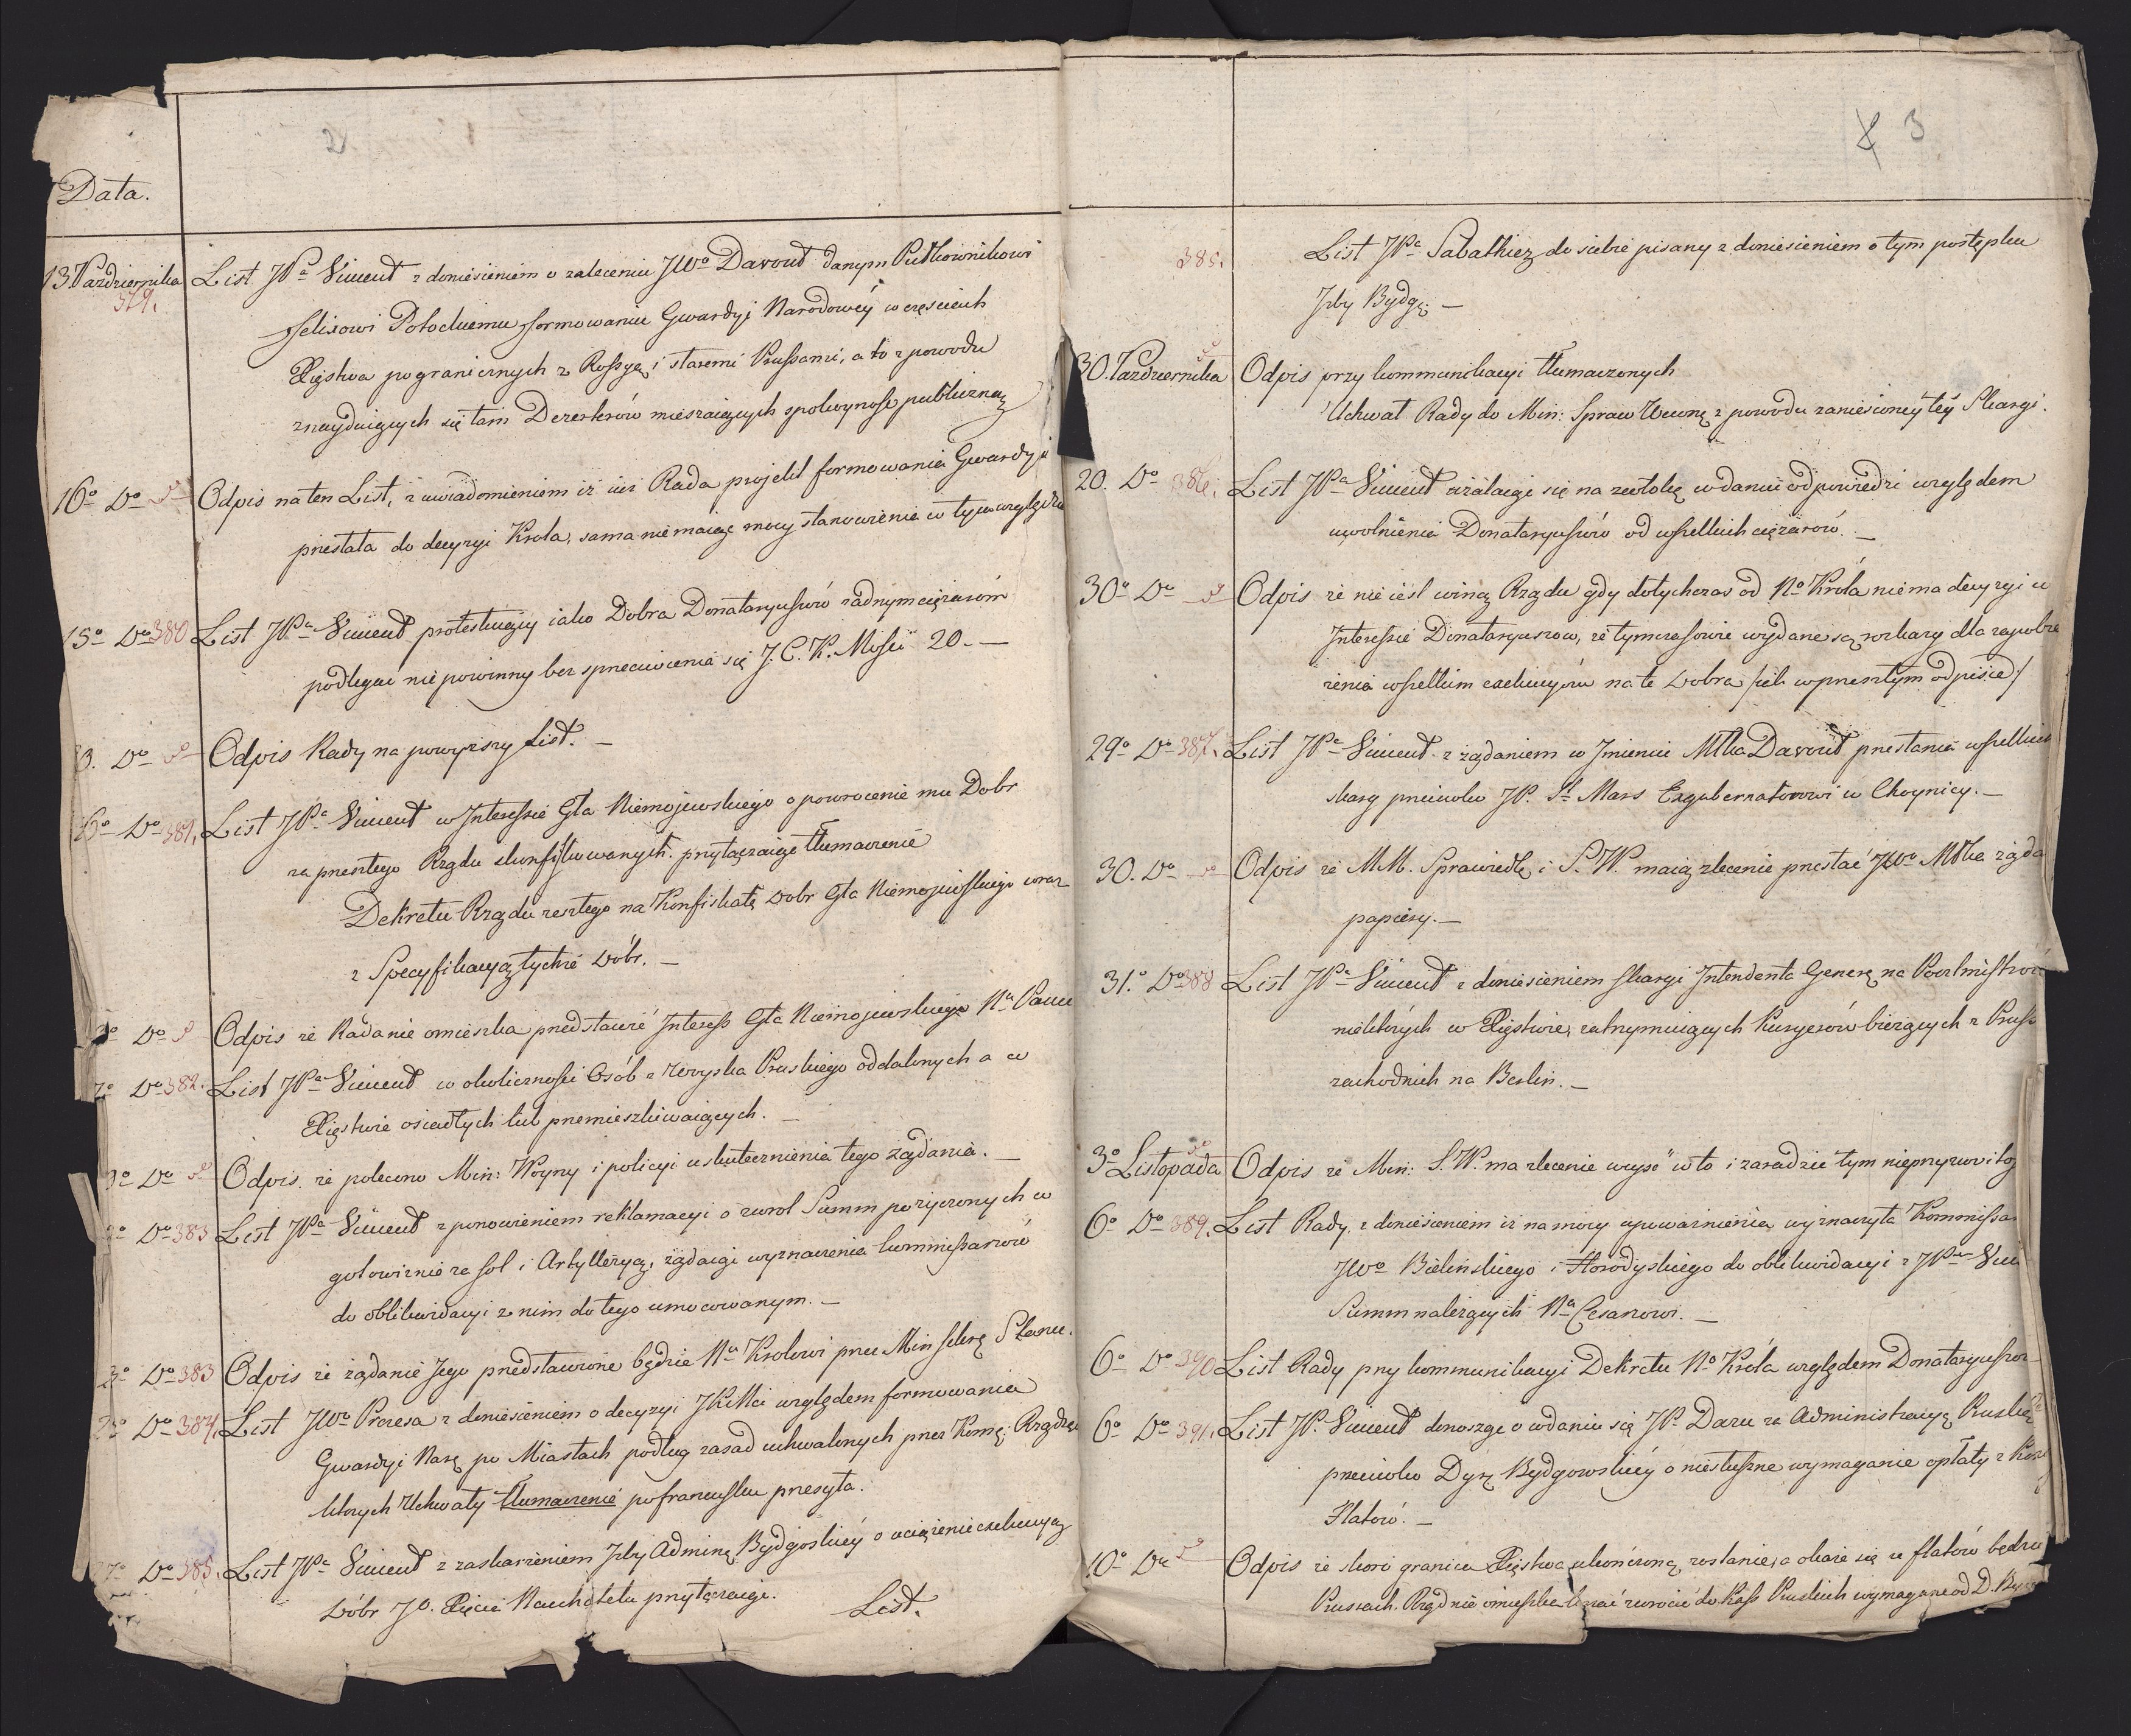 2
Data.
13. Pazdziernika List JPa Vincent z doniesieniem o zaleceniu JWo Davout danym Pułkownikowi
379.
Felixowi Potockiemu formowaniu Gwardyi Narodowéy w częściach
Xięstwa pogranicznych z Rossyą i staremi Prussami, a to z powodu
znayduiących się tam Dezerterów mieszaiących spokoynosc publiczną
16o Do Odpis na ten List, z uwiadomieniem iż iuż Rada projekt formowania Gwardyi
przesłała do decyzyi Krola, sama nie maiąc mocy stanowienia w tym względzie
15o Do 380 List JPa Vincent protestuiący iako Dobra Donataryuszów żadnym ciężarom
podlegac nie powinny bez sprzeciwienia się J. C. K. Mości 20. —
Do Odpis Rady na powyższy List. —
Do 381. List JPa Vincent w Interessie Gła Niemojewskiego o powrocenie mu Dobr
za przeszłego Rządu skonfiskowanych. przyłączaiąc tłumaczenie
Dekretu Rządu zeszłego na Konfiskatę Dobr Gła Niemojewskiego wraz
z Specyfikacyą tychże Dóbr. —
Do Odpis że Rada nie omieszka przedstawić Interess Gła Niemojewskiego Na Panu
Do 382. List JPa Vincent w okolicznosci Osób z Woyska Pruskiego oddalonych a w
Xięstwie osiadłych lub przemieszkiwaiących. —
Do Odpis że polecono Min: Woyny i policyi uskutecznienia tego żądania. —
Do 383 List JPa Vincent z ponowieniem reklamacyi o zwrot Summ pożyczonych w
gotowiznie za sol i Artylleryą, żądaiąc wyznaczenia kommissarzów
do oblikwidacyi z nim do tego umocowanym. —
Do 383 Odpis że żądanie Jego przedstawione będzie Na Krolowi przez Min Sekrę Stanu.
Do 384. List JWo Prezesa z doniesieniem o decyzyi JKMci względem formowania
Gwardyi Narę po Miastach podług zasad uchwalonych przez Komę: Rządzą
ktorych Uchwały tłumaczenie po francusku przesyła.
Do 385. List JPa Vincent z zaskarżeniem Izby Adminę Bydgoskiéy o uciążenie exekucyą
Dóbr JO. Xięcia Neuchatelu przyłączaiąc.
List.
3
385. List JPa Sabathiez do siebie pisany z doniesieniem o tym postępku
Izby Bydgę —
30. Pazdziernika Odpis przy kommunikacyi tłumaczonych
Uchwał Rady do Min: Spraw Wewnę z powodu zaniesioney téy Skargi.
20. Do 386. List JPa Vincent użalaiąc się na zwłokę w daniu odpowiedzi względem
uwolnienia Donataryuszów od wszelkich ciężarów. —
30o Do Odpis że nie iest winą Rządu gdy dotychczas od No Króla nie ma decyzyi w
Interessie Donataryuszow, że tymczasowie wydane są rozkazy dla zapobie
żenia wszelkim exekucyom na te Dobra /: iak w przeszłym odpisie :/
29o Do 387. List JPa Vincent z żądaniem w Jmieniu Młka Davout przesłania wszelkich
skarg przeciwko JP. St Mars Exgubernatorowi w Choynicy. —
30. Do Odpis że MM. Sprawiedlę i S. W. maią zlecenie przesłać JWo Młka żąda
papiery. —
31.o Do 388 List JPa Vincent z doniesieniem skargi Intendenta Generę na Pocztmistrzów
niektórych w Xięstwie, zatrzymuiących Kuryerów bieżących z Pruss
zachodnich na Berlin. —
3o Listopada Odpis że Min: S. W. ma zlecenie weyść w to i zaradzić tym nieprzyzwoitoś
6o Do 389. List Rady z doniesieniem iż na mocy upoważnienia wyznaczyła Kommissar
JWo Bielinskiego i Horodyskiego do oblikwidacyi z JPem Vin
Summ należących Na Cesarzowi. —
6o Do 390 List Rady przy kommunikacyi Dekretu No Króla względem Donataryuszow
6o Do 391. List JP. Vincent donosząc o udaniu się JPa Daru za Administracyą Pruską
przeciwko Dyrę Bydgowskiéy o niesłuszne wymaganie opłaty z
Flatów. —
10o Do Odpis że skoro granica Xięstwa ukończoną zostanie, a okaże się że Flatów będzie
Prussach. Rząd nie omieszka kazać zwrocić do Kass Pruskich wymagane od D.